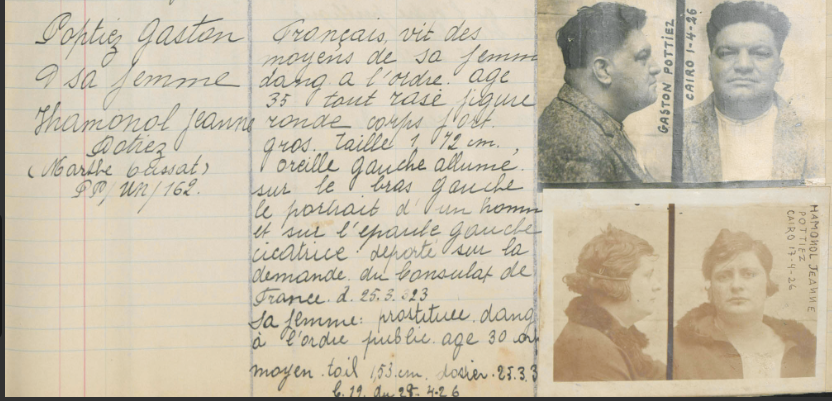 Poptiez Gaston
& sa femme
Thamonol Jeanne
Potiez
(Marthe Cussat)
PP/UN/162.
Français, vit des
moyens de sa femm
dang a l'ordre. age
35 tout rasé figure
ronde corps fort
gros. taille 1 72 cm.,
oreille gauche allume.
sur le bras gauche
le portrait d'un homm
et sur l'epaule gauche
cicatrice deporté sur la
demande du Consulat de
France. d. 25.3.
Sa femme: prostituée. dang
à l'ordre public. age 30 an
moyen. tail 1,53.cm. dosier.25.3.3
C.19. du 28. 4.26
GASTON POTTIEZ
CAIRO 1-4-26
HAMONOL JEANNE
POTTIEZ
CAIRO 17-4-26